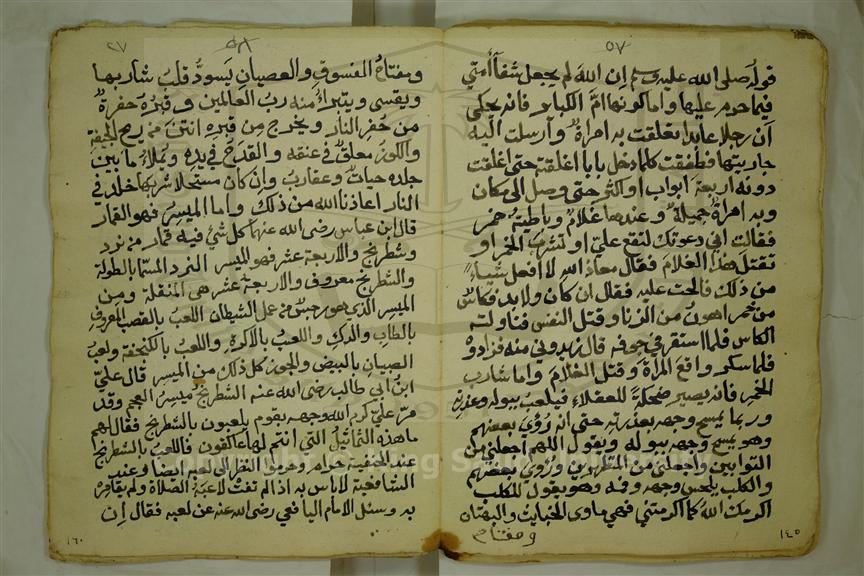 ٥٧
قوله صلى الله عليه وسلم ان الله لم يجعل شفآأمتي
فيما حرم عليها واما كونها امّ الكبائر فانه يحكى
ان رجلا عابدا تعلقت به امراة وارسلت اليه
جاريتها فطفقت كلما دخل بابا اغلقته حتى اغلقت
دونه اربعة ابواب او اكثر حتى وصل الى مكان
وبه امراة جميلة وعندها غلام وباطية خمر
فقالت اني دعوتك لتقع عليّ او تشرب الخمر او
تقتل هذا الغلام فقال معاذ الله لا افعل شيأ
من ذلك فالحت عليه فقال ان كان ولا بد فكاس
من خمر اهون من الزنا وقتل النفس فناولته
الكاس فلما استقر في جوفه قال زيدوني منه فزادوه
فلما سكر واقع المراة وقتل الغلام واما شارب
الخمر فانه يصير ضحكة للعقلاء فيلعب ببوله وعذرته
وربما يمسح وجهه بعذرته حتى انه رؤى بعضهم
وهو يمسح وجهه ببوله ويقول اللهم اجعلني من
التوابين واجعلني من المتطهرين ورؤى بعضهم
والكلب يلحس وجهه وفمه وهو يقول للكلب
اكرمك الله كما اكرمتني فهي ماوى الخبايث والبهتان
ومفتاح
١٤٥
٥٨
٢٧
ومفتاح الفسوق والعصيان يَسودُّ قلبُ شاربها
ويقسى ويتبرأ منه ربُ العالمين وقبره حفرة
من حُفر النار ويخرج من قبره انتن من ريح الجيفة
والكوز معلق في عنقه والقدح في يده ويُملأ ما بين
جلده حيات وعقارب وان كان مستحلا شربها خلد في
النار اعاذنا الله من ذلك واما الميسر فهو القمار
قال ابن عباس رضى الله عنهما كل شيء فيه قمار من نرد
وشطرنج والاربعة عشر فهو الميسر النرد المسمّا بالطولة
والشطرنج معروف والاربعة عشر هى المنقلة ومن
الميسر الذي هو رجس من عمل الشيطان اللعبُ بالقصب المعروف
بالطاب والدك واللعبُ بالاكرة واللعب بالكنجفة ولعبُ
الصبيان بالبيض والجوز كل ذلك من الميسر قال عليّ
ابن ابي طالب رضى الله عنه الشطرنج ميسرُ العجم وقد
مرّ عليّ كرم الله وجهه بقوم يلعبون بالشطرنج فقال لهم
ما هذه التماثيلُ التي انتم لها عاكفون فاللعب بالشطرنج
عند الحنفية حرام وحرموا التفرّج لى لعبه ايضا وعند
الشافعية لا باس به اذا لم تفت لاعبهُ الصلاة ولم يقامر
به وسئل الامام اليافعي رضى الله عنه عن لعبه فقال ان
١٦٠